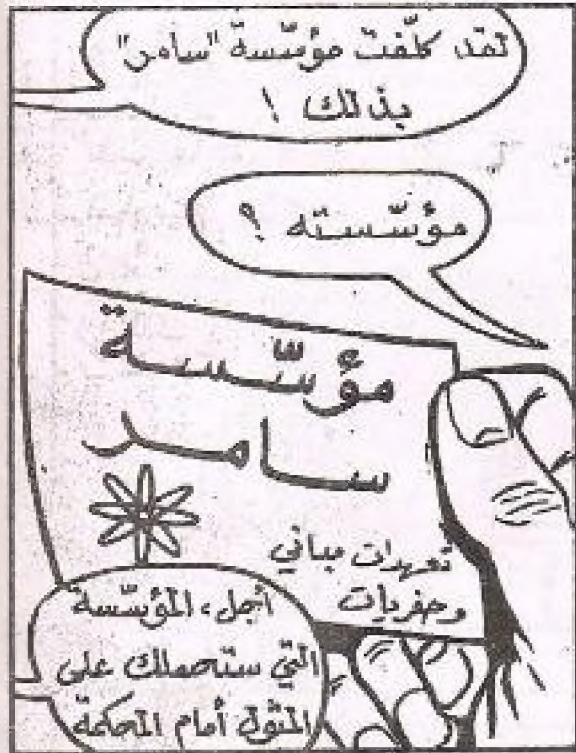 لقد كلّفت مؤسّسة "سامر"
بذلك !
مؤسّسته ؟
مؤسّسة
سامر
تعهدات مباني
وحفريات
أجل، المؤسّسة
التي ستحملك على
المثول أمام المحكمة